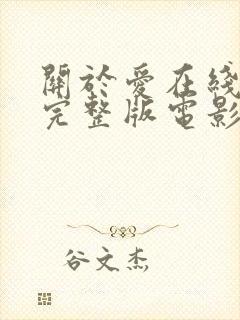 關於愛在綫
完整版電影
谷文杰